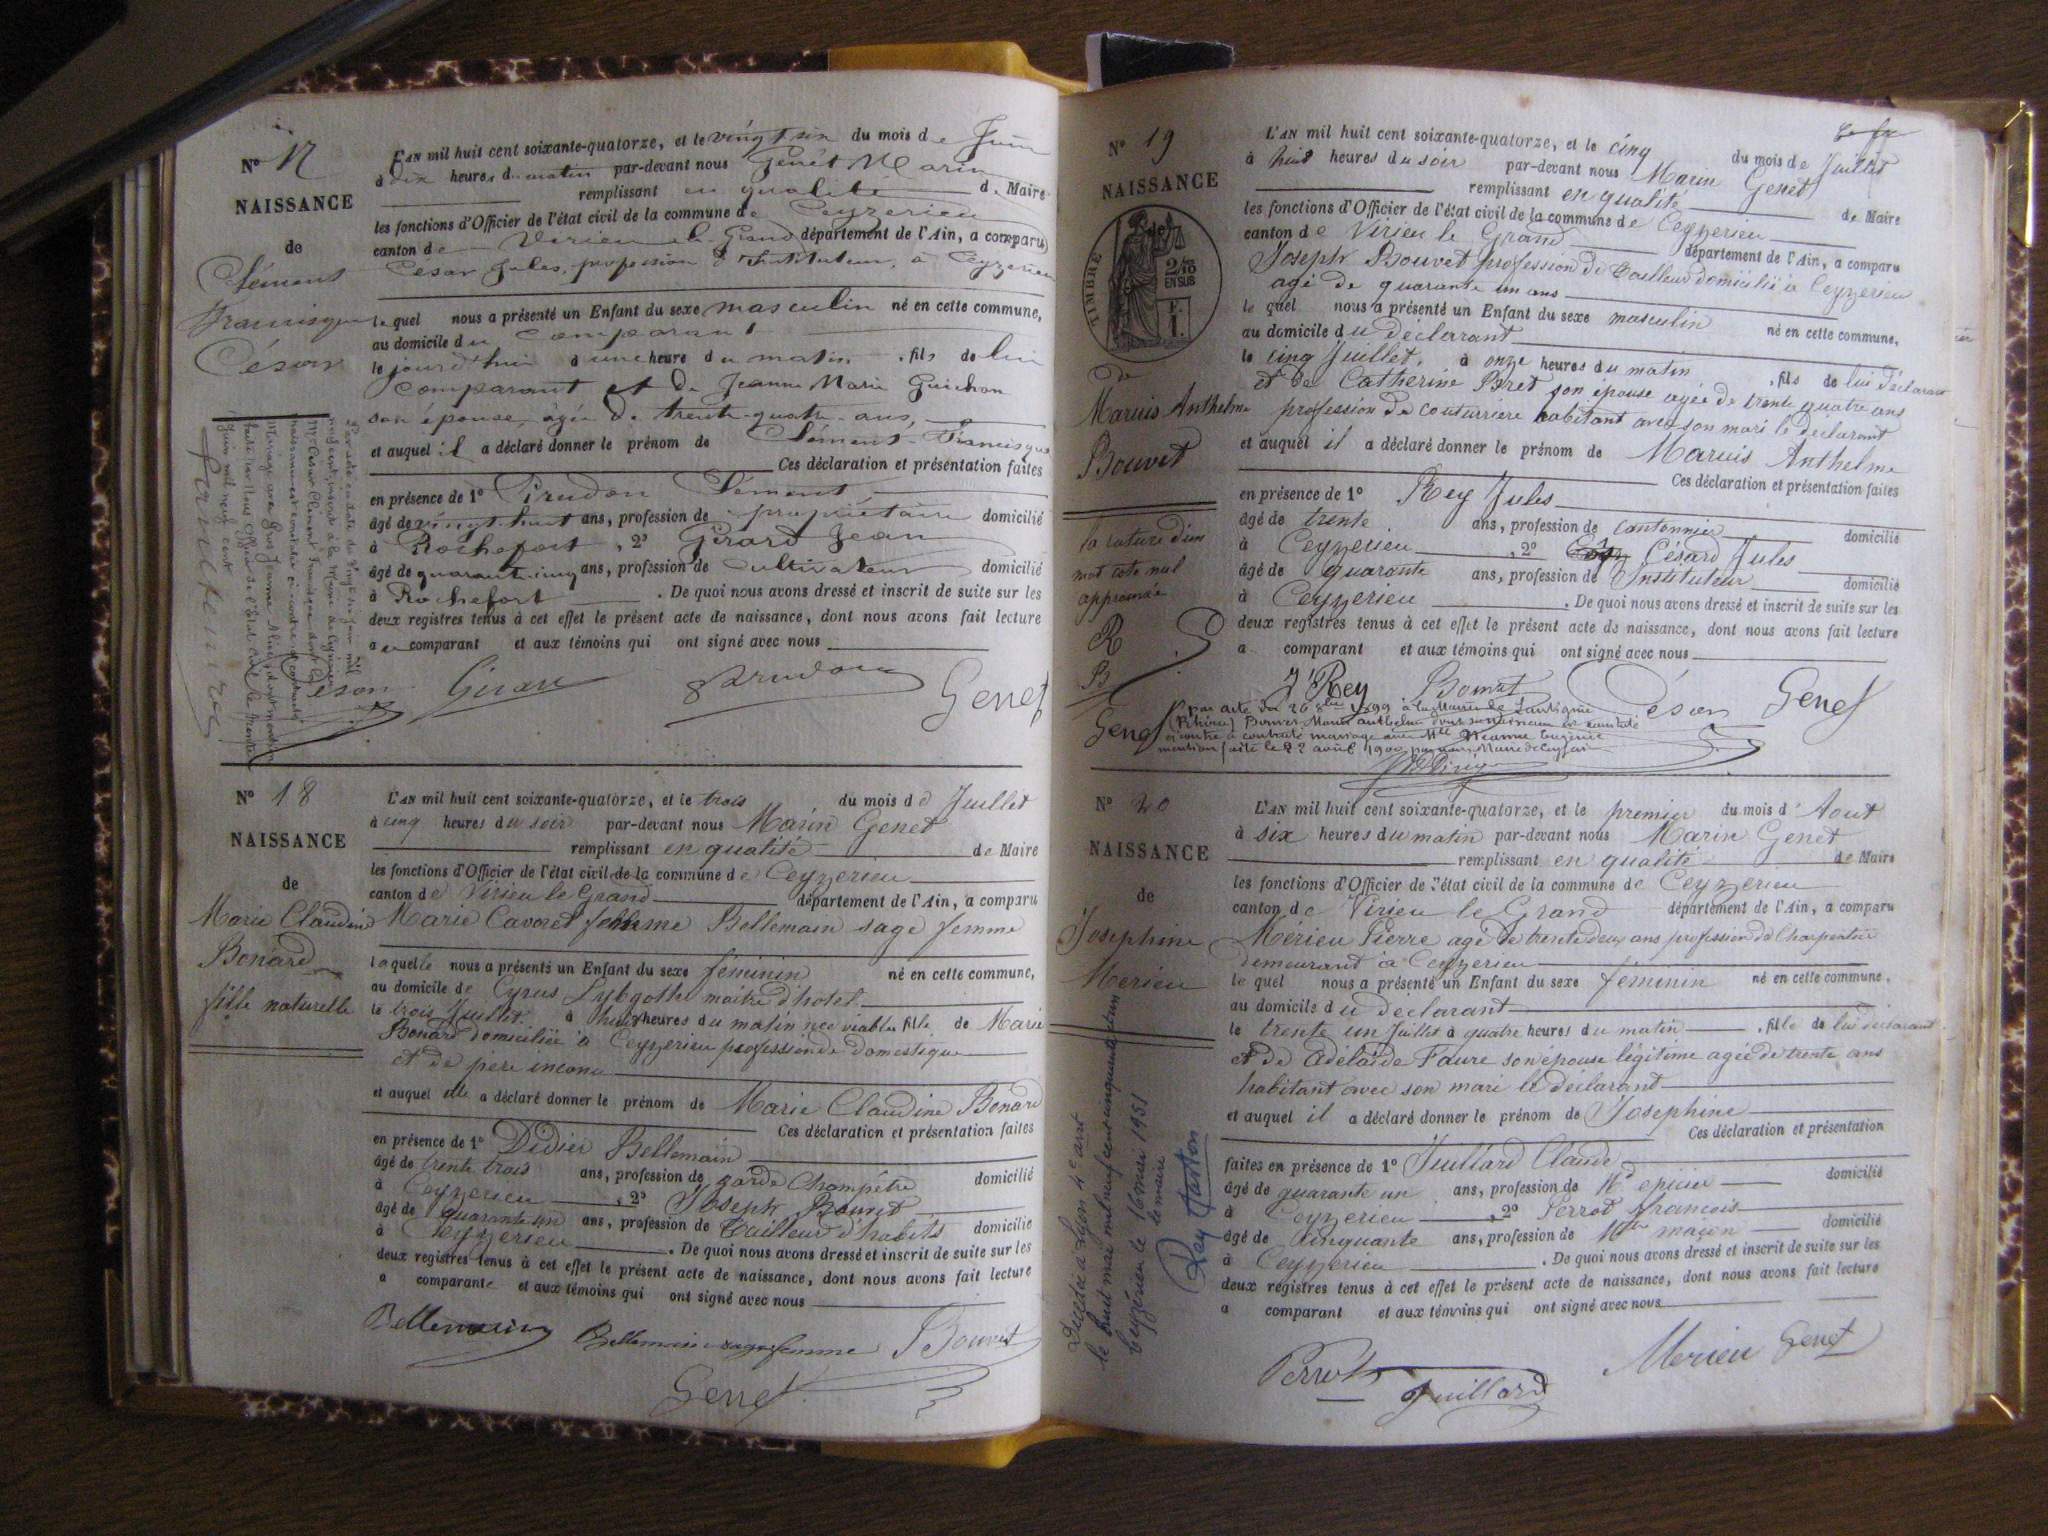 N° 17
NAISSANCE
de
Clément
Francisque
Césan
L'AN mil huit cent soixante-quatorze, et le vingt six du mois de Juin
à dix heures du matin par-devant nous Genet Marin
remplissant en qualité de Maire
les fonctions d'Officier de l'état civil de la commune de Ceyzerieu
canton de Virieu le Grand département de l'Ain, a comparu
Césan Jules, profession d'Instituteur, à Ceyzerieu
le quel nous a présenté un Enfant du sexe masculin né en cette commune,
au domicile du comparant
le jourd'hui à une heure du matin, fils de lui
comparant et de Jeanne Marie Guichon
son épouse, âgée de trente-quatre ans,
et auquel il a déclaré donner le prénom de Clément-Francisque
Ces déclaration et présentation faites
en présence de 1° Prudon Clément
âgé de vingt huit ans, profession de propriétaire domicilié
à Rochefort, 2° Girard Jean
âgé de quarante-cinq ans, profession de cultivateur domicilié
à Rochefort. De quoi nous avons dressé et inscrit de suite sur les
deux registres tenus à cet effet le présent acte de naissance, dont nous avons fait lecture
au comparant et aux témoins qui ont signé avec nous
Césan Girard Prudon Genet
N° 18
NAISSANCE
de
Marie Claudine
Bonard
fille naturelle
L'AN mil huit cent soixante-quatorze, et le trois du mois de Juillet
à cinq heures du soir par-devant nous Marin Genet
remplissant en qualité de Maire
les fonctions d'Officier de l'état civil de la commune de Ceyzerieu
canton de Virieu le Grand département de l'Ain, a comparu
Marie Cavoret femme Bellemain sage femme
laquelle nous a présenté un Enfant du sexe féminin né en cette commune,
au domicile de Cyrus maitre d'hotel
le trois Juillet à huit heures du matin née viable fille de Marie
Bonard domiciliée à Ceyzerieu profession de domestique
et de père inconu
et auquel elle a déclaré donner le prénom de Marie Claudine Bonard
Ces déclaration et présentation faites
en présence de 1° Didier Bellemain
âgé de trente trois ans, profession de garde Champêtre domicilié
à Ceyzerieu, 2° Joseph Bouvet
âgé de quarante un ans, profession de Tailleur d'habits domicilié
à Ceyzerieu. De quoi nous avons dressé et inscrit de suite sur les
deux registres tenus à cet effet le présent acte de naissance, dont nous avons fait lecture
a comparante et aux témoins qui ont signé avec nous
Bellemain Bellemain sage femme Bouvet
Genet
N° 19
NAISSANCE
TIMBRE
2/10
EN SUS
F.
1.
de
Marius Anthelme
Bouvet
la rature d'un
mot coté nul
approuvée
R
B
Genet
L'AN mil huit cent soixante-quatorze, et le cinq du mois de Juillet
à huit heures du soir par-devant nous Marin Genet
remplissant en qualité de Maire
les fonctions d'Officier de l'état civil de la commune de Ceyzerieu
canton de Virieu le Grand département de l'Ain, a comparu
Joseph Bouvet profession de Tailleur domicilié à Ceyzerieu
agé de quarante un ans
le quel nous a présenté un Enfant du sexe masculin né en cette commune,
au domicile du déclarant
le cinq Juillet, à onze heures du matin, fils de lui déclarant
et de Catherine Biret son épouse agée de trente quatre ans
profession de couturriere habitant avec son mari le déclarant
et auquel il a déclaré donner le prénom de Marius Anthelme
Ces déclaration et présentation faites
en présence de 1° Rey Jules
âgé de trente ans, profession de cantonnier domicilié
à Ceyzerieu, 2° Césard Jules
âgé de quarante ans, profession d'Instituteur domicilié
à Ceyzerieu. De quoi nous avons dressé et inscrit de suite sur les
deux registres tenus à cet effet le présent acte de naissance, dont nous avons fait lecture
a comparant et aux témoins qui ont signé avec nous
J. Rey Bouvet Césan Genet
par acte du 26 8bre 1899 à la Mairie de
(Rhône) Bouvet Marius anthelme dont la naissance est constatée
ci contre a contracté mariage avec Mlle Jeanne Eugénie
mention faite le 22 avril 1900 par nous Maire de Ceyzérieu
N° 20
NAISSANCE
de
Josephine
Merieu
Décédée à Lyon 4e arrt
le huit mai mil neuf cent cinquante et un
Ceyzérieu le 16 mai 1951
le maire
L'AN mil huit cent soixante-quatorze, et le premier du mois d'Aout
à six heures du matin par-devant nous Marin Genet
remplissant en qualité de Maire
les fonctions d'Officier de l'état civil de la commune de Ceyzerieu
canton de Virieu le Grand département de l'Ain, a comparu
Mérieu Pierre agé de trente deux ans profession de Charpentier
demeurant à Ceyzerieu
le quel nous a présenté un Enfant du sexe féminin né en cette commune,
au domicile du déclarant
le trente un Juillet à quatre heures du matin, fille de lui déclarant
et de Adélaïde Faure son épouse légitime agée de trente ans
habitant avec son mari le déclarant
et auquel il a déclaré donner le prénom de Josephine
Ces déclaration et présentation
faites en présence de 1° Juillard Claude
âgé de quarante un ans, profession de Md epicier domicilié
à Ceyzerieu, 2° Perrot francois
âgé de cinquante ans, profession de Mtre maçon domicilié
à Ceyzerieu. De quoi nous avons dressé et inscrit de suite sur les
deux registres tenus à cet effet le présent acte de naissance, dont nous avons fait lecture
a comparant et aux témoins qui ont signé avec nous
Perrot Juillard Merieu Genet